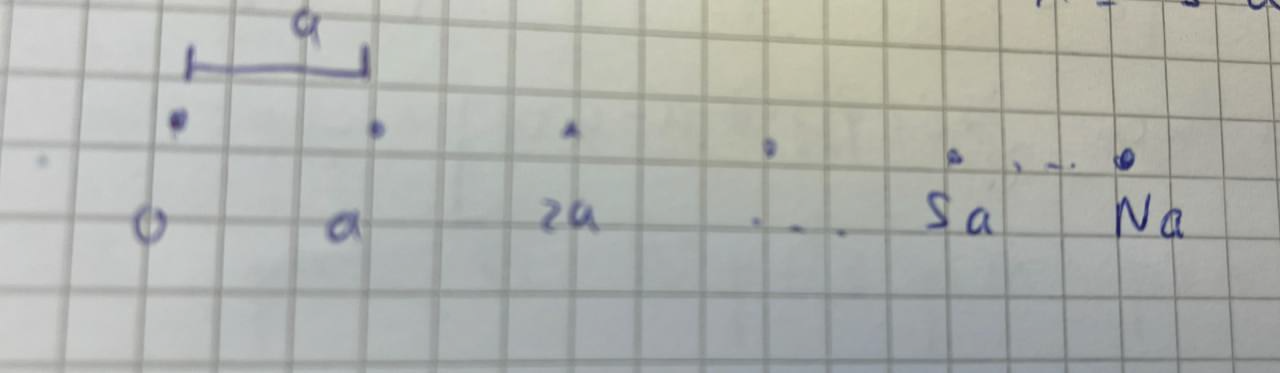 a
0 a 2a ... Sa ... Na